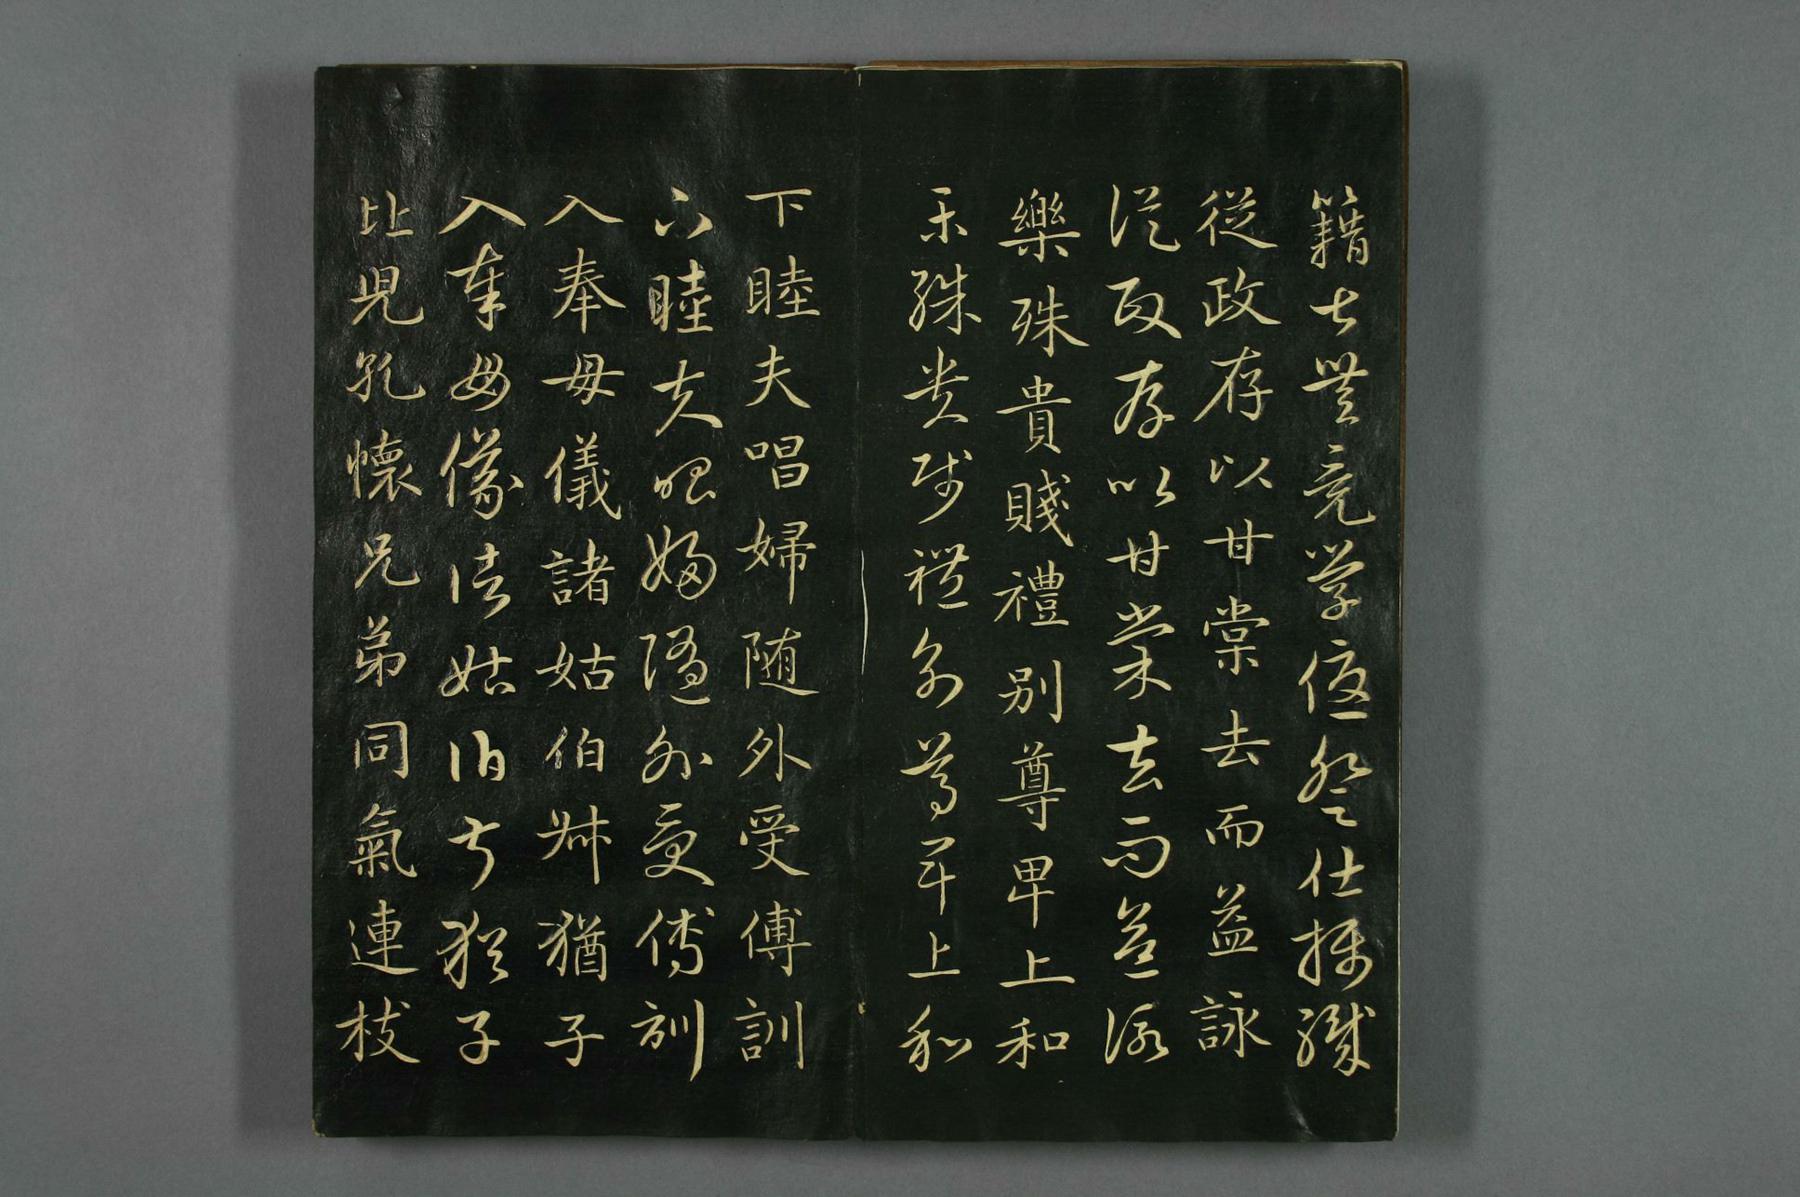 籍甚無竟學優登仕攝職
從政存以甘棠去而益詠
從政存以甘棠去而益詠
樂殊貴賤禮別尊卑上和
樂殊貴賤禮別尊卑上和
下睦夫唱婦随外受傅訓
下睦夫唱婦随外受傅訓
入奉母儀諸姑伯叔猶子
入奉母儀諸姑伯叔猶子
比兒孔懷兄弟同氣連枝